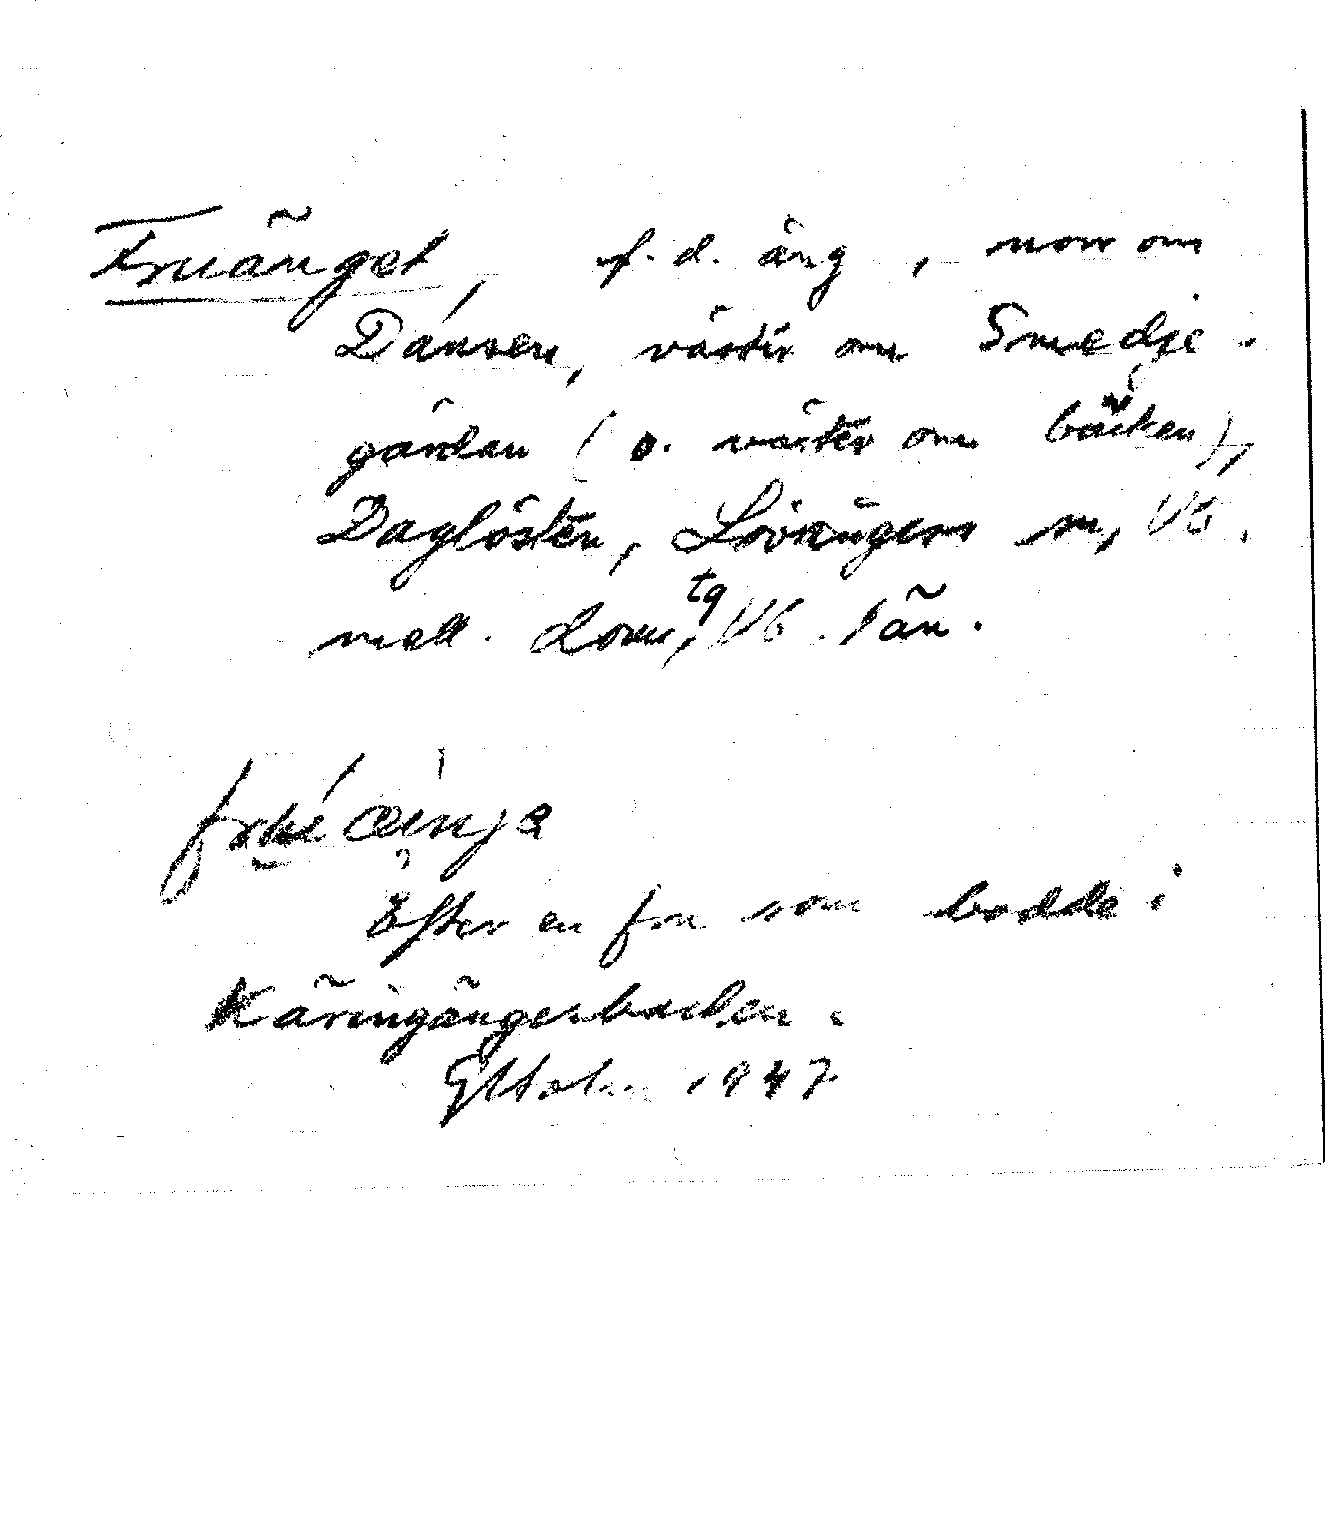 Fruänget, f. d. äng, norr om
Dansen, väster om Smedje-
gården (o. väster om bäcken),
Daglösten, Lövångers sn, Vb.
mell. domsg, Vb. län.
Efter en fru som bodde i
Käringängesbacken.
1947